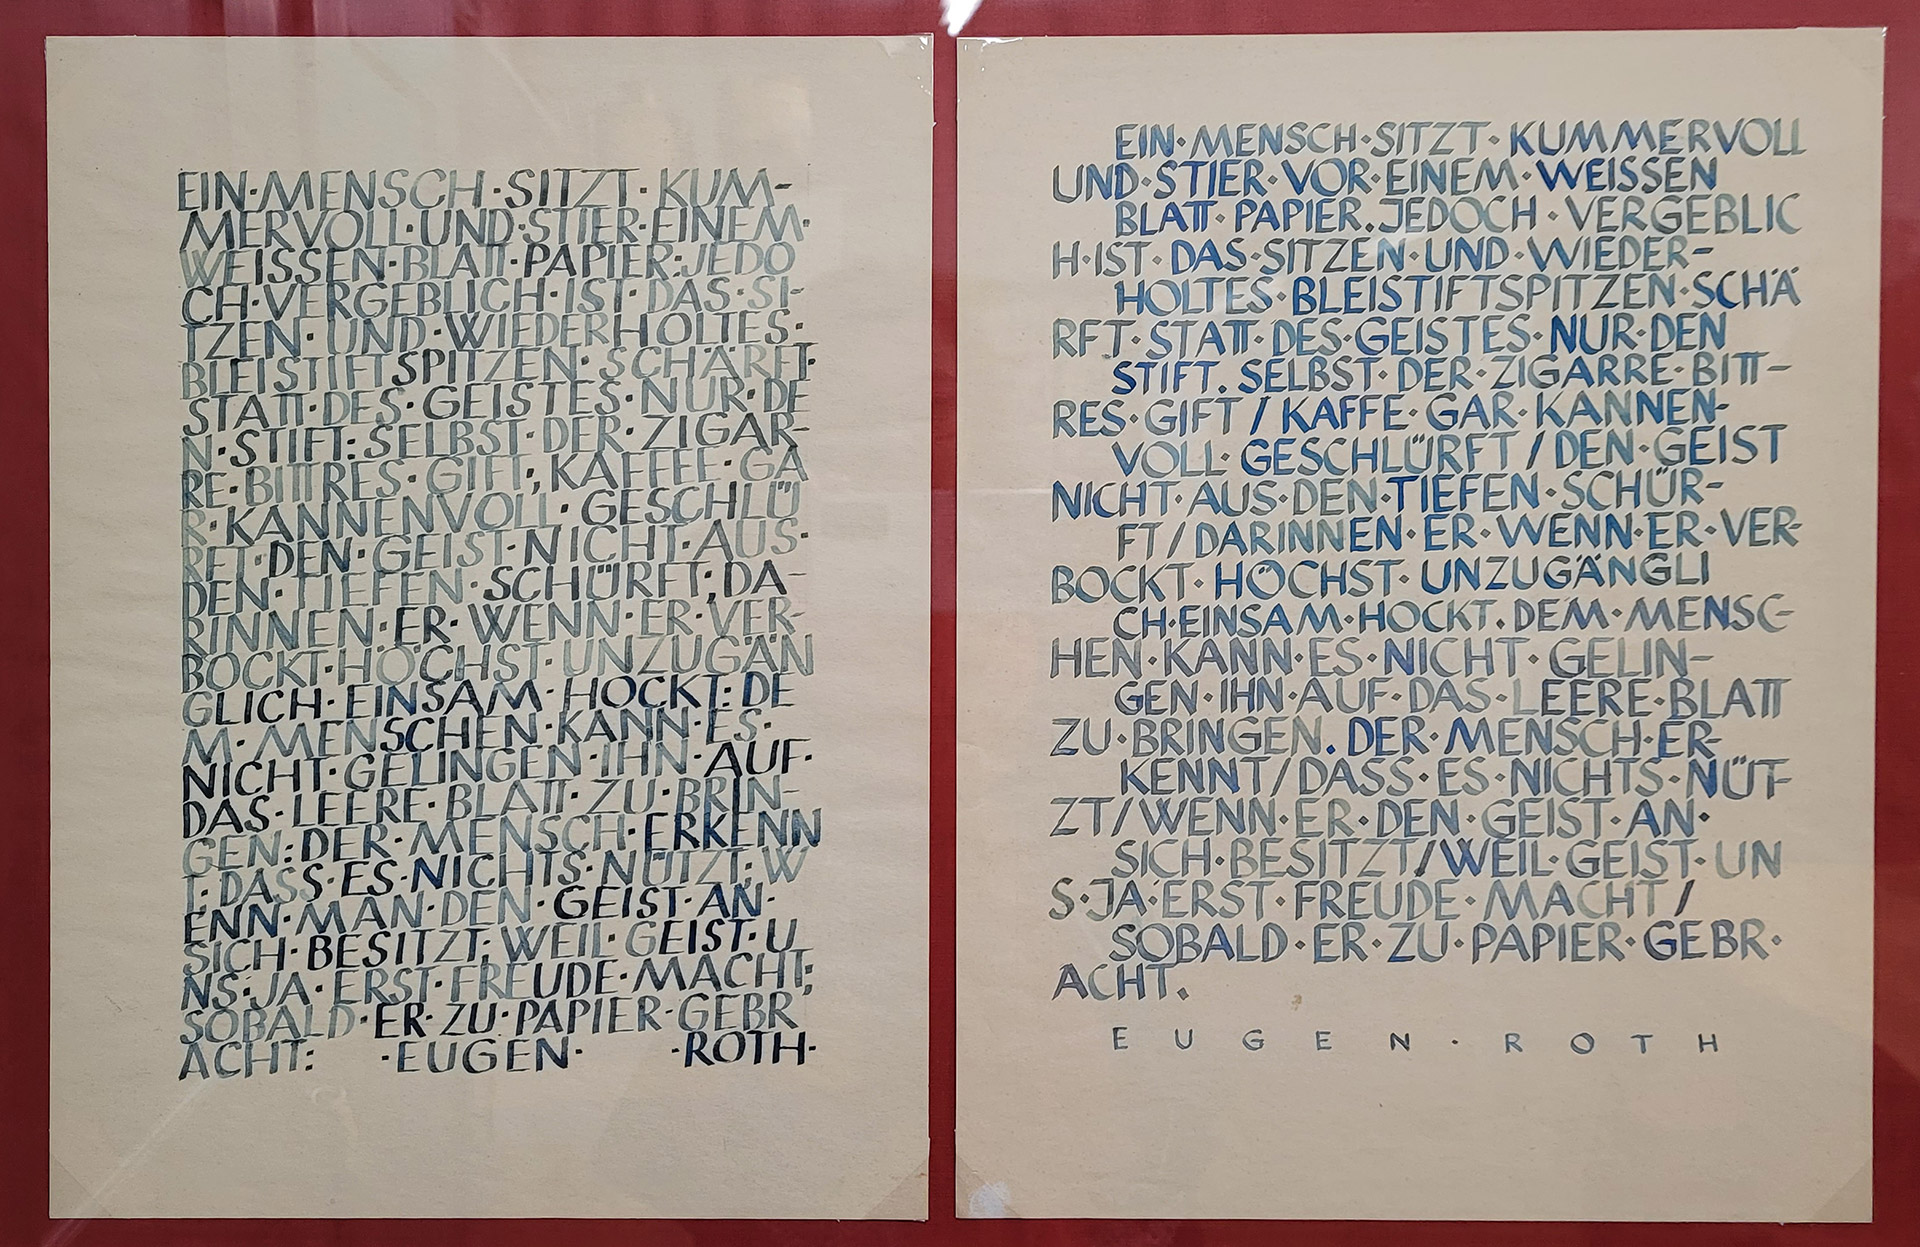 EIN·MENSCH·SITZT·KUM-
MERVOLL·UND·STIER·EINEM·
WEISSEN·BLATT·PAPIER:JEDO
CH·VERGEBLICH·IST·DAS·SI-
TZEN·UND·WIEDERHOLTES·
BLEISTIFTSPITZEN·SCHÄRFT·
STATT·DES·GEISTES·NUR·DE
N·STIFT:SELBST·DER·ZIGAR-
RE·BITTRES·GIFT,KAFFEE·GA
R·KANNENVOLL·GESCHLÜ
RFT·DEN·GEIST·NICHT·AUS·
DEN·TIEFEN·SCHÜRFT;DA-
RINNEN·ER·WENN·ER·VER-
BOCKT·HÖCHST·UNZUGÄN
GLICH·EINSAM·HOCKT:DE
M·MENSCHEN·KANN·ES·
NICHT·GELINGEN·IHN·AUF·
DAS·LEERE·BLATT·ZU·BRIN-
GEN:DER·MENSCH·ERKENN
T;DASS·ES·NICHTS·NÜTZT;W
ENN·MAN·DEN·GEIST·AN·
SICH·BESITZT;WEIL·GEIST·U
NS·JA·ERST·FREUDE·MACHT;
SOBALD·ER·ZU·PAPIER·GEBR
ACHT: ·EUGEN· ·ROTH·
EIN·MENSCH·SITZT·KUMMERVOLL
UND·STIER·VOR·EINEM·WEISSEN
BLATT·PAPIER.JEDOCH·VERGEBLIC
H·IST·DAS·SITZEN·UND·WIEDER-
HOLTES·BLEISTIFTSPITZEN·SCHÄ
RFT·STATT·DES·GEISTES·NUR·DEN
STIFT.SELBST·DER·ZIGARRE·BITT-
RES·GIFT/KAFFE·GAR·KANNEN-
VOLL·GESCHLÜRFT/DEN·GEIST
NICHT·AUS·DEN·TIEFEN·SCHÜR-
FT/DARINNEN·ER·WENN·ER·VER-
BOCKT·HÖCHST·UNZUGÄNGLI
CH·EINSAM·HOCKT.DEM·MENSC-
HEN·KANN·ES·NICHT·GELIN-
GEN·IHN·AUF·DAS·LEERE·BLATT
ZU·BRINGEN.DER·MENSCH·ER-
KENNT/DASS·ES·NICHTS·NÜT-
ZT/WENN·ER·DEN·GEIST·AN·
SICH·BESITZT/WEIL·GEIST·UN
S·JA·ERST·FREUDE·MACHT/
SOBALD·ER·ZU·PAPIER·GEBR·
ACHT.
EUGEN·ROTH